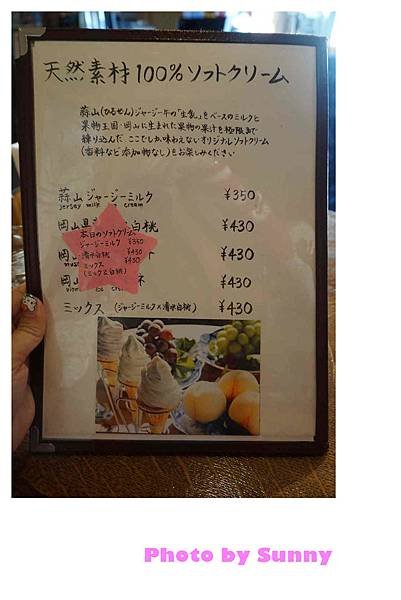 天然素材100%ソフトクリーム
蒜山(ひるぜん)ジャージー牛の「生乳」をベースのミルクと
果物王国・岡山に生まれた果物の果汁を極限まで
練り込んだ、ここでしか味わえないオリジナルソフトクリーム
(香料など添加物なし)をお楽しみください
蒜山ジャージーミルク ¥350
jersey milk cream
岡山県 白桃 ¥430
本日のソフトクリーム
ジャージーミルク ¥350
清水白桃 ¥430
ミックス ¥430
(ミルクと白桃)
岡山 ¥430
岡山 ¥430
ミックス (ジャージーミルク×清水白桃) ¥430
Photo by Sunny